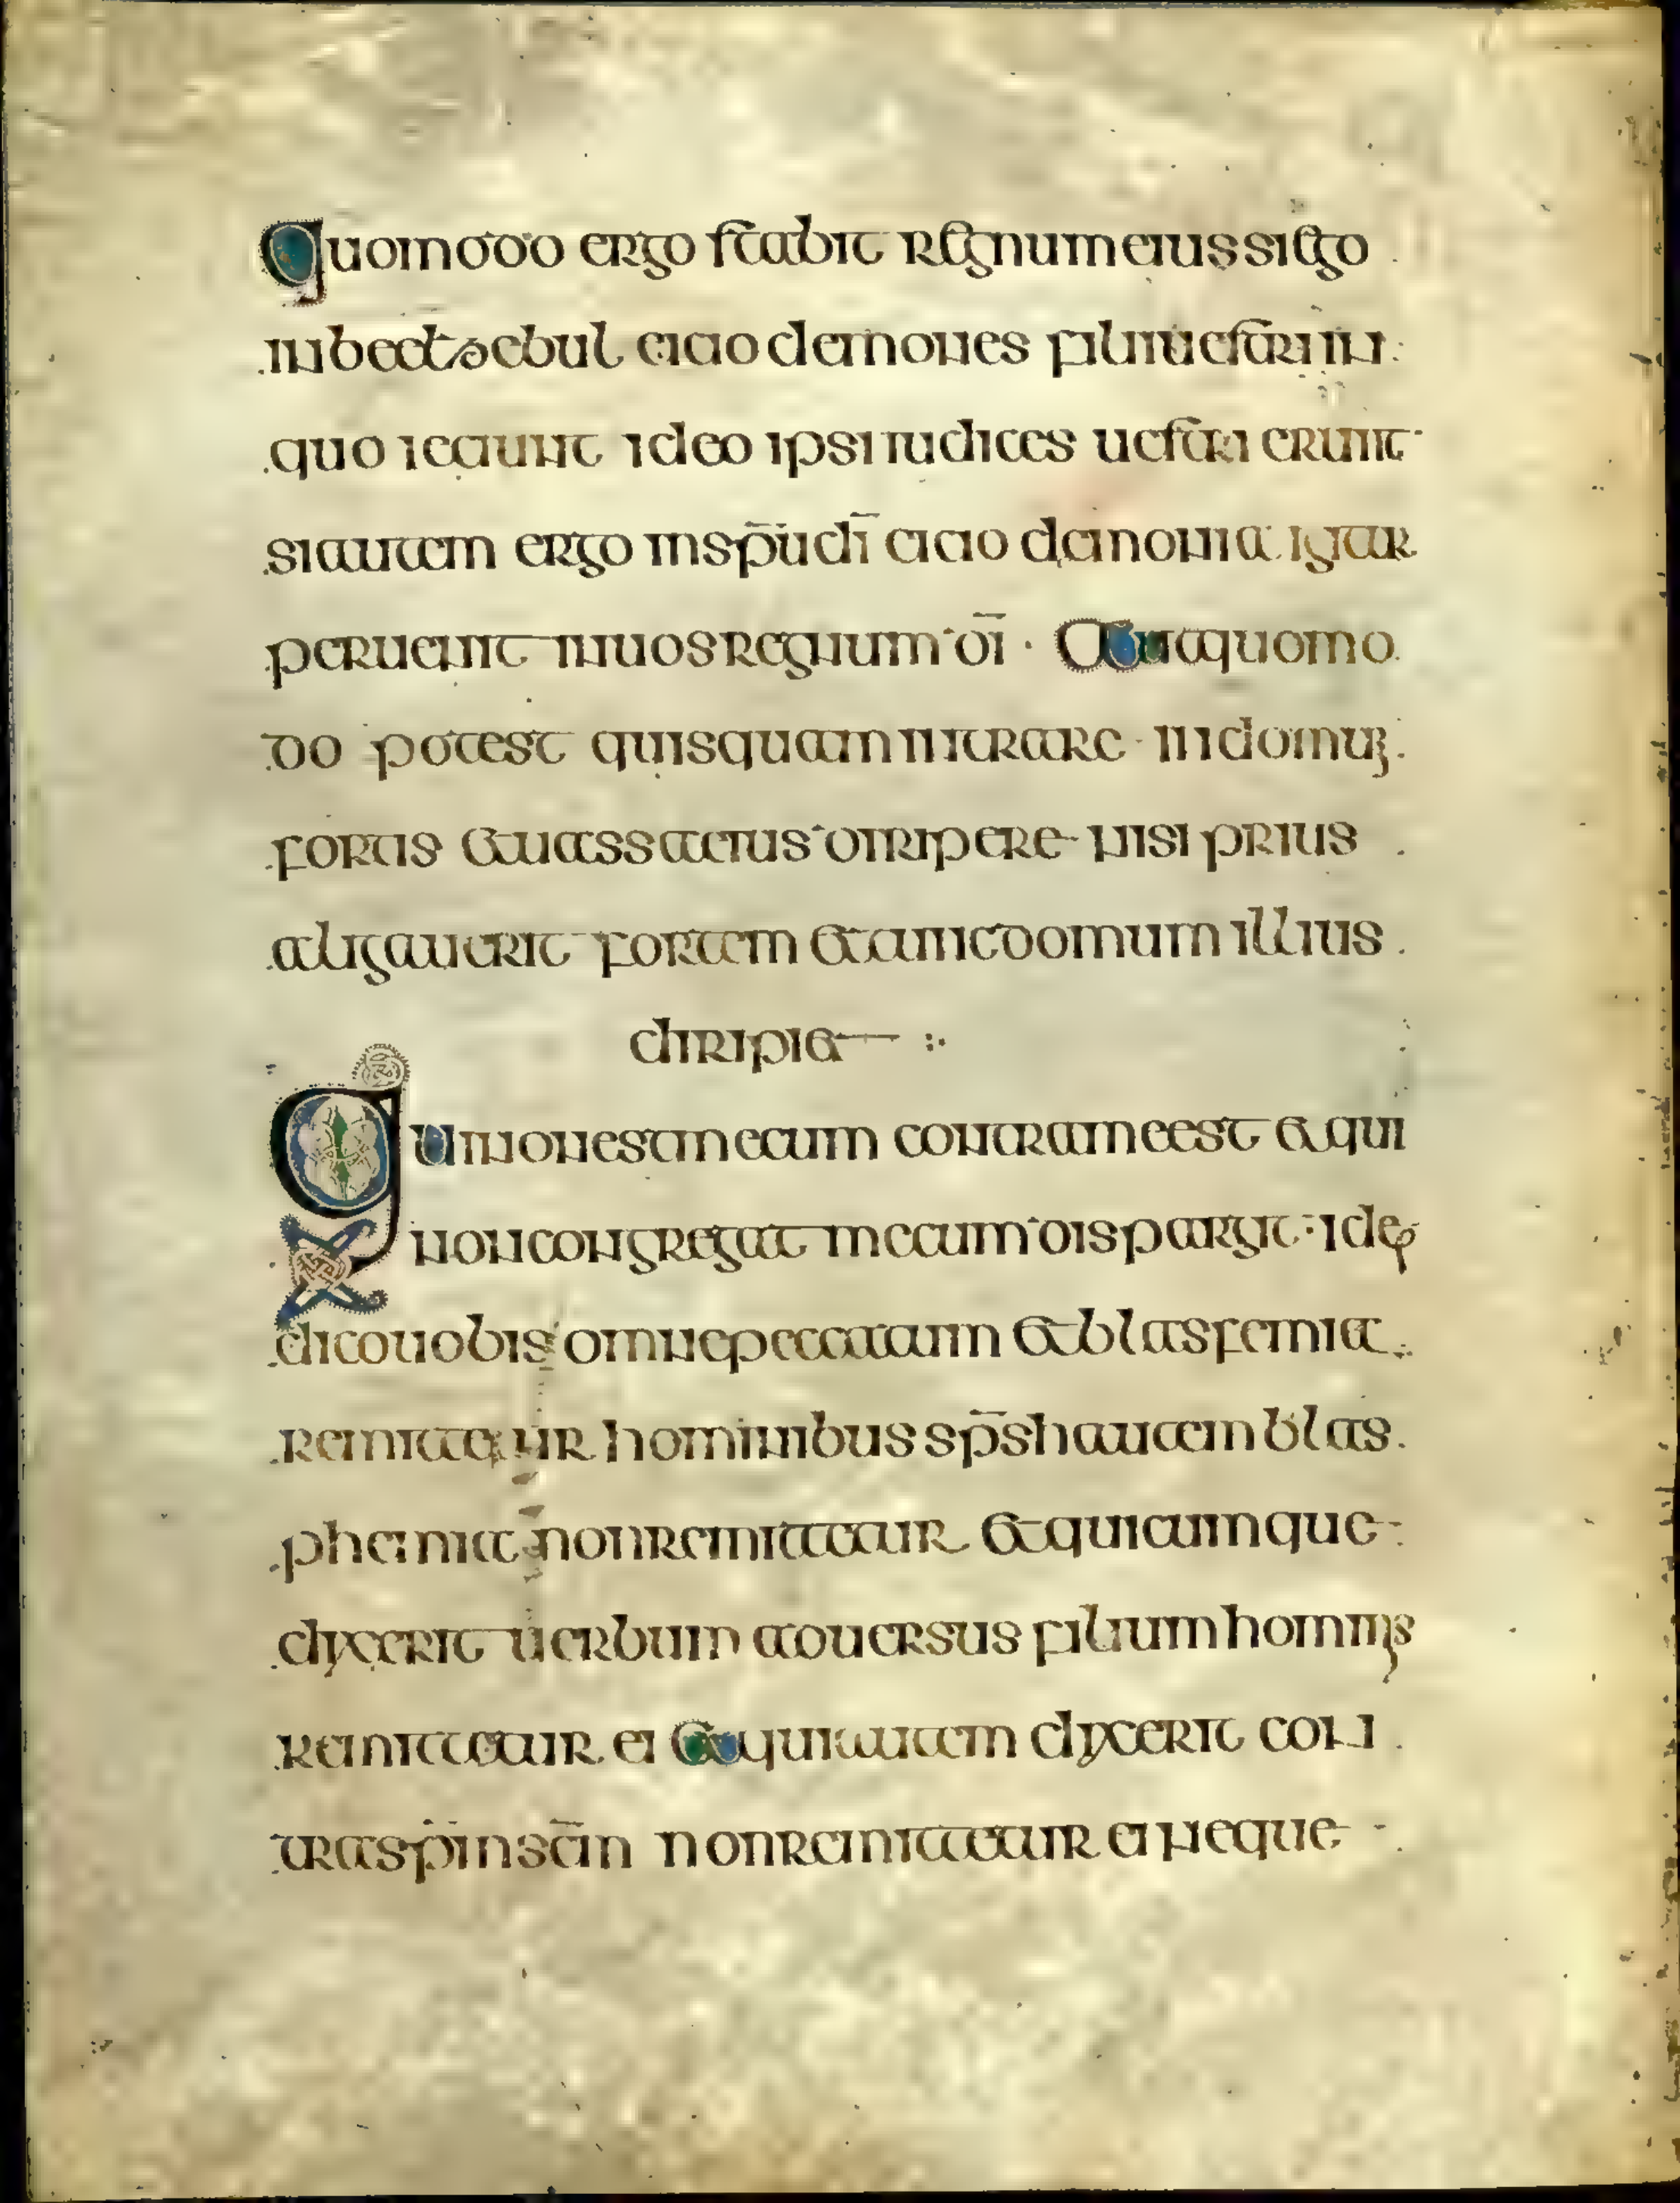 Quomodo ergo stabit regnum eius si ego
in beelzebul eicio demones filii uestri in
quo ieciunt ideo ipsi iudices uestri erunt
si autem ergo in sp̄u dī eicio demonia igitur
peruenit in uos regnum dī · Aut quomo
do potest quisquam intrare in domum
fortis et uassa eius diripere nisi prius
aligauerit fortem et tunc domum illius
diripiet
Qui non est mecum contra me est et qui
non congregat mecum dispargit : ideo
dico uobis omne peccatum et blasfemia
remittetur hominibus sp̄s h autem blas
phemia non remittetur et quicumque
dixerit uerbum aduersus filium hominis
remittetur ei Et qui autem dixerit con
tra sp̄m sc̄m non remittetur ei neque